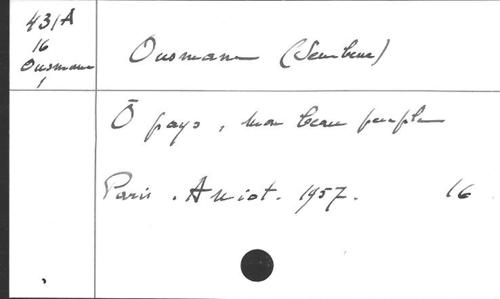 431A
16
Ousmane
1
Ousmane (Sembene)
Ô pays, mon beau peuple
Paris. Amiot. 1957. 16